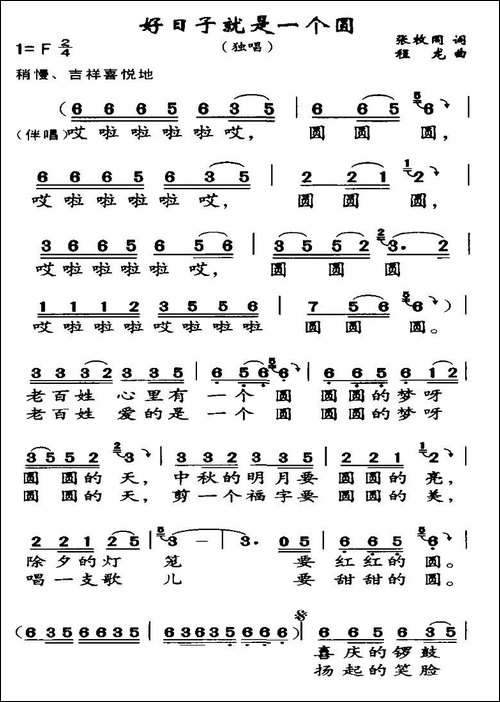 好日子就是一个圆
1=F 2/4
（独唱）
张枚同 词
程龙 曲
稍慢、吉祥喜悦地
（6 6 6 5 6 3 5 | 6 6 5 5 6
（伴唱）哎啦啦啦啦哎，圆圆圆，
6 6 6 5 6 6 5 3 | 2 2 1 1 2 |
哎啦啦啦啦哎，圆圆圆，
3 6 6 5 6 5 6 | 3 5 5 2 2 3· 2 |
哎啦啦啦啦哎，圆圆圆
1 1 1 2 3 5 5 6 | 7 5 6 2 6）|
哎啦啦啦啦啦啦啦圆圆圆。
3 3 3 2 3 3 5 | 6 5 6 5 6 | 6 6 5 6 1 2
老百姓心里有一个圆圆圆的梦呀
老百姓爱的是一个圆圆圆的梦呀
3 5 5 2 2 3 | 5 5 3 2 3 5 | 2 2 1 6 2 |
圆圆的天，中秋的明月要圆圆的亮，
圆圆的天，剪一个福字要圆圆的美，
2 2 1 2 5 | 5 3 － | 3· 0 5 | 6 6 5 5 6 |
除夕的灯笼要红红的圆。
唱一支歌儿要甜甜的圆。
（6 3 5 6 6 3 5 | 6 3 6 3 5 6 6 6）| 6 6 5 6 3 5 |
喜庆的锣鼓
扬起的笑脸